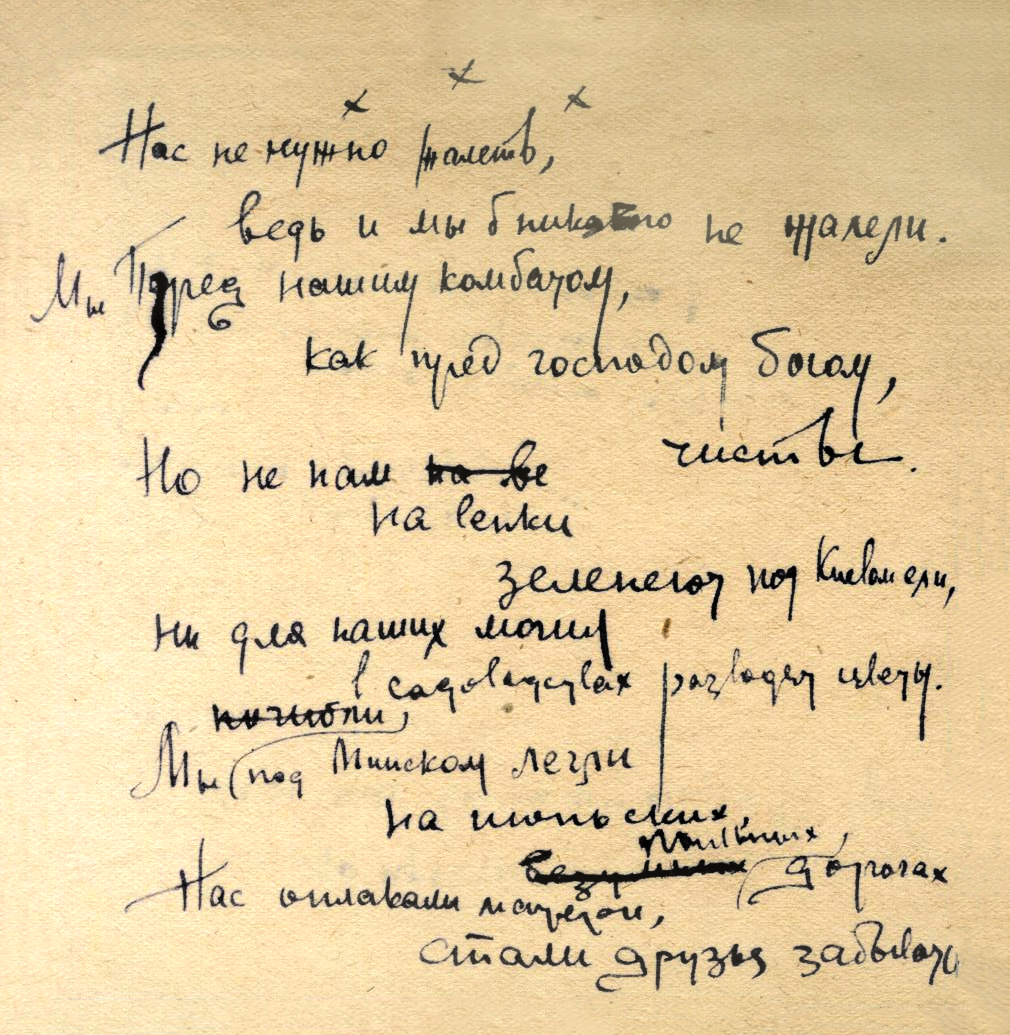 х х х
Нас не нужно жалеть,
ведь и мы б никого не жалели.
Мы пред нашим комбатом,
как пред господом богом,
чисты.
Но не нам на ве
на венки
зеленеют под Киевом ели,
ни для наших могил
в садоводствах разводят цветы.
погибли,
Мы под Минском легли
на июньских,
пыльных,
дорогах
Нас оплакали матери,
стали друзья забывать